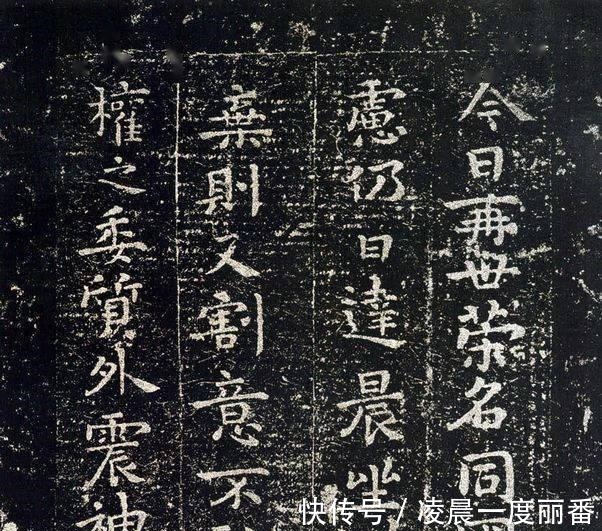 今日再世荣名同
慮仍日達晨坐
棄則又割意不
權之委質外震神
快传号 / 凌晨一度丽番